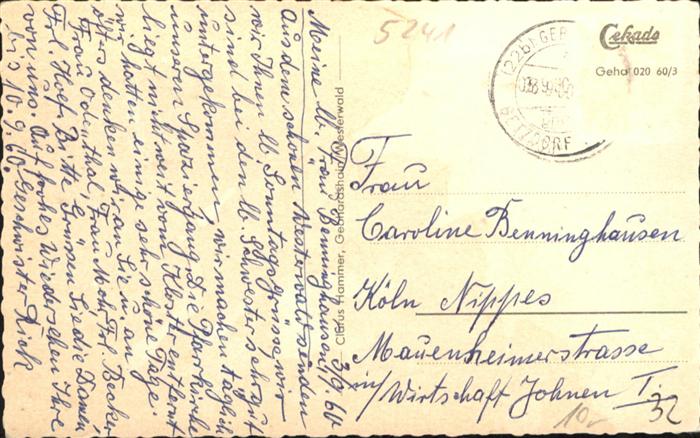 Meine lb. Frau Benninghausen! 3/9 60
Aus dem schönen Westerwalt senden
wir Ihnen lb. Sonntagsgrüsse wir
sind bei den lb. Schwestern sehr gut
untergekommen wir machen täglich
unsern Spaziergang. Die Pfarrkirche
liegt nicht weit vom Kloster entfernt
wir hatten einige sehr schöne Tage.
öfters denken wir an Sie u. an
Frau Odenthal, Frau Mohr Frl. Becker
Frl. Hoef. Bitte Grüssen Sie die Damen
von uns. Auf frohes Wiedersehen Ihre
bis 10.9.60. Geschwister Rick
Clarus Hammer, Gebhardshain/Westerwald
5241
(22b) GEB
BETZDORF
Cekade
Geha 020 60/3
Frau
Caroline Benninghausen
Köln Nippes
Mauenheimerstrasse
in/Wirtschaft Johnen I.
32
10.-